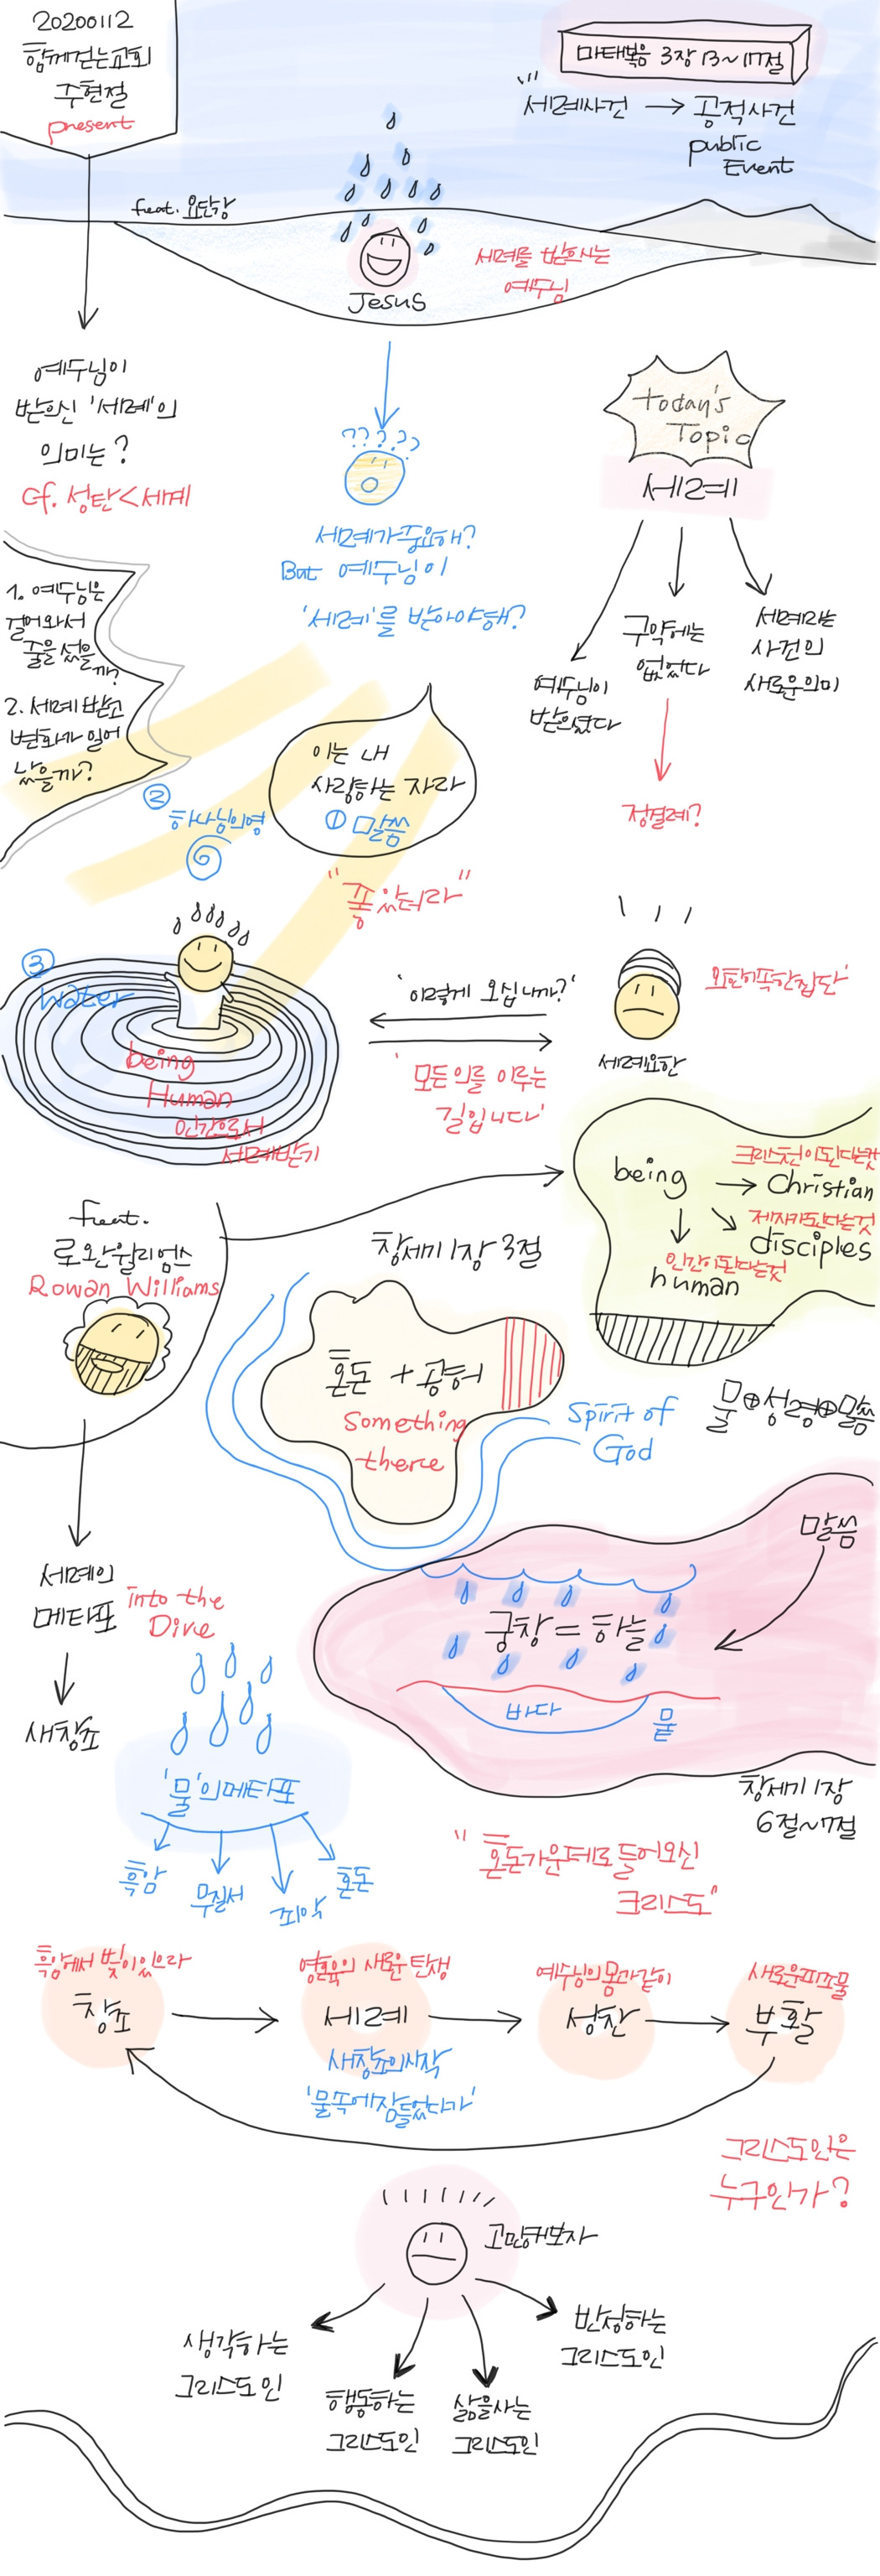 20200112
함께걷는교회
주현절
present
마태복음 3장 13~17절
세례사건 → 공적사건
public
Event
feat. 요단강
Jesus
세례를 받으시는
예수님
예수님이
받으신 '세례'의
의미는?
cf. 성탄<세례
?????
세례가 중요해?
But 예수님이
'세례'를 받아야해?
today's
Topic
세례
예수님이
받으셨다
구약에는
없었다
세례라는
사건의
새로운의미
정결례?
1. 예수님은
걸어와서
줄을 섰을
까?
2. 세례 받고
변화가 일어
났을까?
이는 내
사랑하는 자라
① 말씀
②
하나님의영
"좋았더라"
③
Water
being
Human
인간으로서
세례받기
'이렇게 오십니까?'
'모든 의를 이루는
길입니다'
세례요한
feat.
로완윌리엄스
Rowan Williams
being → Christian
크리스천이된다는것
제자가된다는것
disciples
인간이된다는것
human
창세기 1장 3절
혼돈 + 공허
Something
there
Spirit of
God
물⊕성령⊕말씀
말씀
궁창 = 하늘
바다
뭍
창세기 1장
6절~7절
세례의
메타포
into the
Dive
새창조
'물'의메타포
흑암
무질서
죄악
혼돈
"혼돈가운데로 들어오신
크리스도"
흑암에서 빛이있으라
창조
영혼육의 새로운 탄생
세례
새창조의시작
'물속에잠들었다가'
예수님의 몸과같이
성찬
새로운피조물
부활
그리스도인은
누구인가?
고민해보자
생각하는
그리스도인
행동하는
그리스도인
삶을사는
그리스도인
반성하는
그리스도인